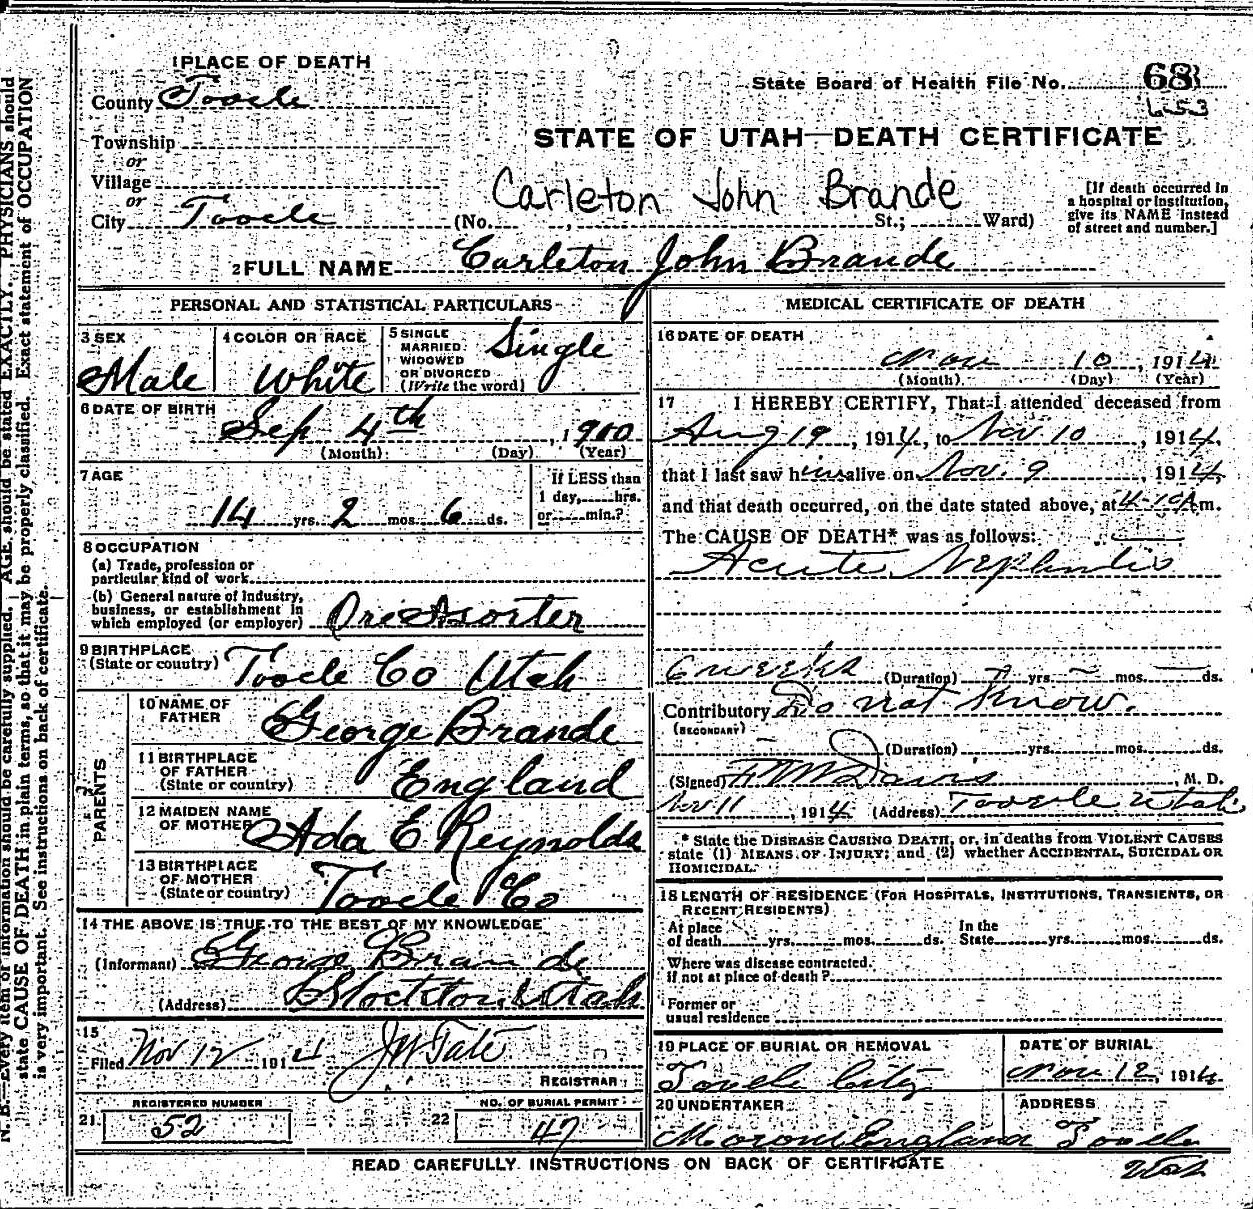 1 PLACE OF DEATH
County Tooele
Township
or
Village
or
City Tooele
State Board of Health File No. 68
653
STATE OF UTAH—DEATH CERTIFICATE
Carleton John Brande
(No. , St.; Ward)
[If death occurred in
a hospital or institution,
give its NAME instead
of street and number.]
2 FULL NAME Carleton John Brande
PERSONAL AND STATISTICAL PARTICULARS
3 SEX
Male
4 COLOR OR RACE
White
5 SINGLE
MARRIED
WIDOWED
OR DIVORCED
(Write the word)
Single
6 DATE OF BIRTH
Sep 4th, 1900
(Month) (Day) (Year)
7 AGE
14 yrs. 2 mos. 6 ds.
If LESS than
1 day, hrs.
or min.?
8 OCCUPATION
(a) Trade, profession or
particular kind of work
(b) General nature of industry,
business, or establishment in
which employed (or employer) Ore Asorter
9 BIRTHPLACE
(State or country) Tooele Co Utah
PARENTS
10 NAME OF
FATHER George Brande
11 BIRTHPLACE
OF FATHER
(State or country) England
12 MAIDEN NAME
OF MOTHER Ada E Reynolds
13 BIRTHPLACE
OF MOTHER
(State or country) Tooele Co
14 THE ABOVE IS TRUE TO THE BEST OF MY KNOWLEDGE
(Informant) George Brande
(Address) Stockton Utah
15
Filed Nov 12 1914 J W Tate
REGISTRAR
REGISTERED NUMBER
21 52
NO. OF BURIAL PERMIT
22 47
MEDICAL CERTIFICATE OF DEATH
16 DATE OF DEATH
Nov 10, 1914
(Month) (Day) (Year)
17 I HEREBY CERTIFY, That I attended deceased from
Aug 19, 1914, to Nov 10, 1914,
that I last saw him alive on Nov. 9 1914,
and that death occurred, on the date stated above, at 4-10 A m.
The CAUSE OF DEATH* was as follows:
Acute Nephritis
6 weeks (Duration) yrs. mos. ds.
Contributory Do not Know.
(SECONDARY)
(Duration) yrs. mos. ds.
(Signed) F M Davis M. D.
Nov 11, 1914 (Address) Tooele Utah
* State the DISEASE CAUSING DEATH, or, in deaths from VIOLENT CAUSES
state (1) MEANS OF INJURY; and (2) whether ACCIDENTAL, SUICIDAL OR
HOMICIDAL.
18 LENGTH OF RESIDENCE (FOR HOSPITALS, INSTITUTIONS, TRANSIENTS, OR
RECENT RESIDENTS)
At place
of death yrs. mos. ds.
In the
State yrs. mos. ds.
Where was disease contracted
if not at place of death?
Former or
usual residence
19 PLACE OF BURIAL OR REMOVAL
Tooele City
DATE OF BURIAL
Nov 12, 1914
20 UNDERTAKER
Moroni England
ADDRESS
Tooele
Utah
READ CAREFULLY INSTRUCTIONS ON BACK OF CERTIFICATE
N. B.—Every item of information should be carefully supplied. AGE should be stated EXACTLY. PHYSICIANS should
state CAUSE OF DEATH in plain terms, so that it may be properly classified. Exact statement of OCCUPATION
is very important. See instructions on back of certificate.